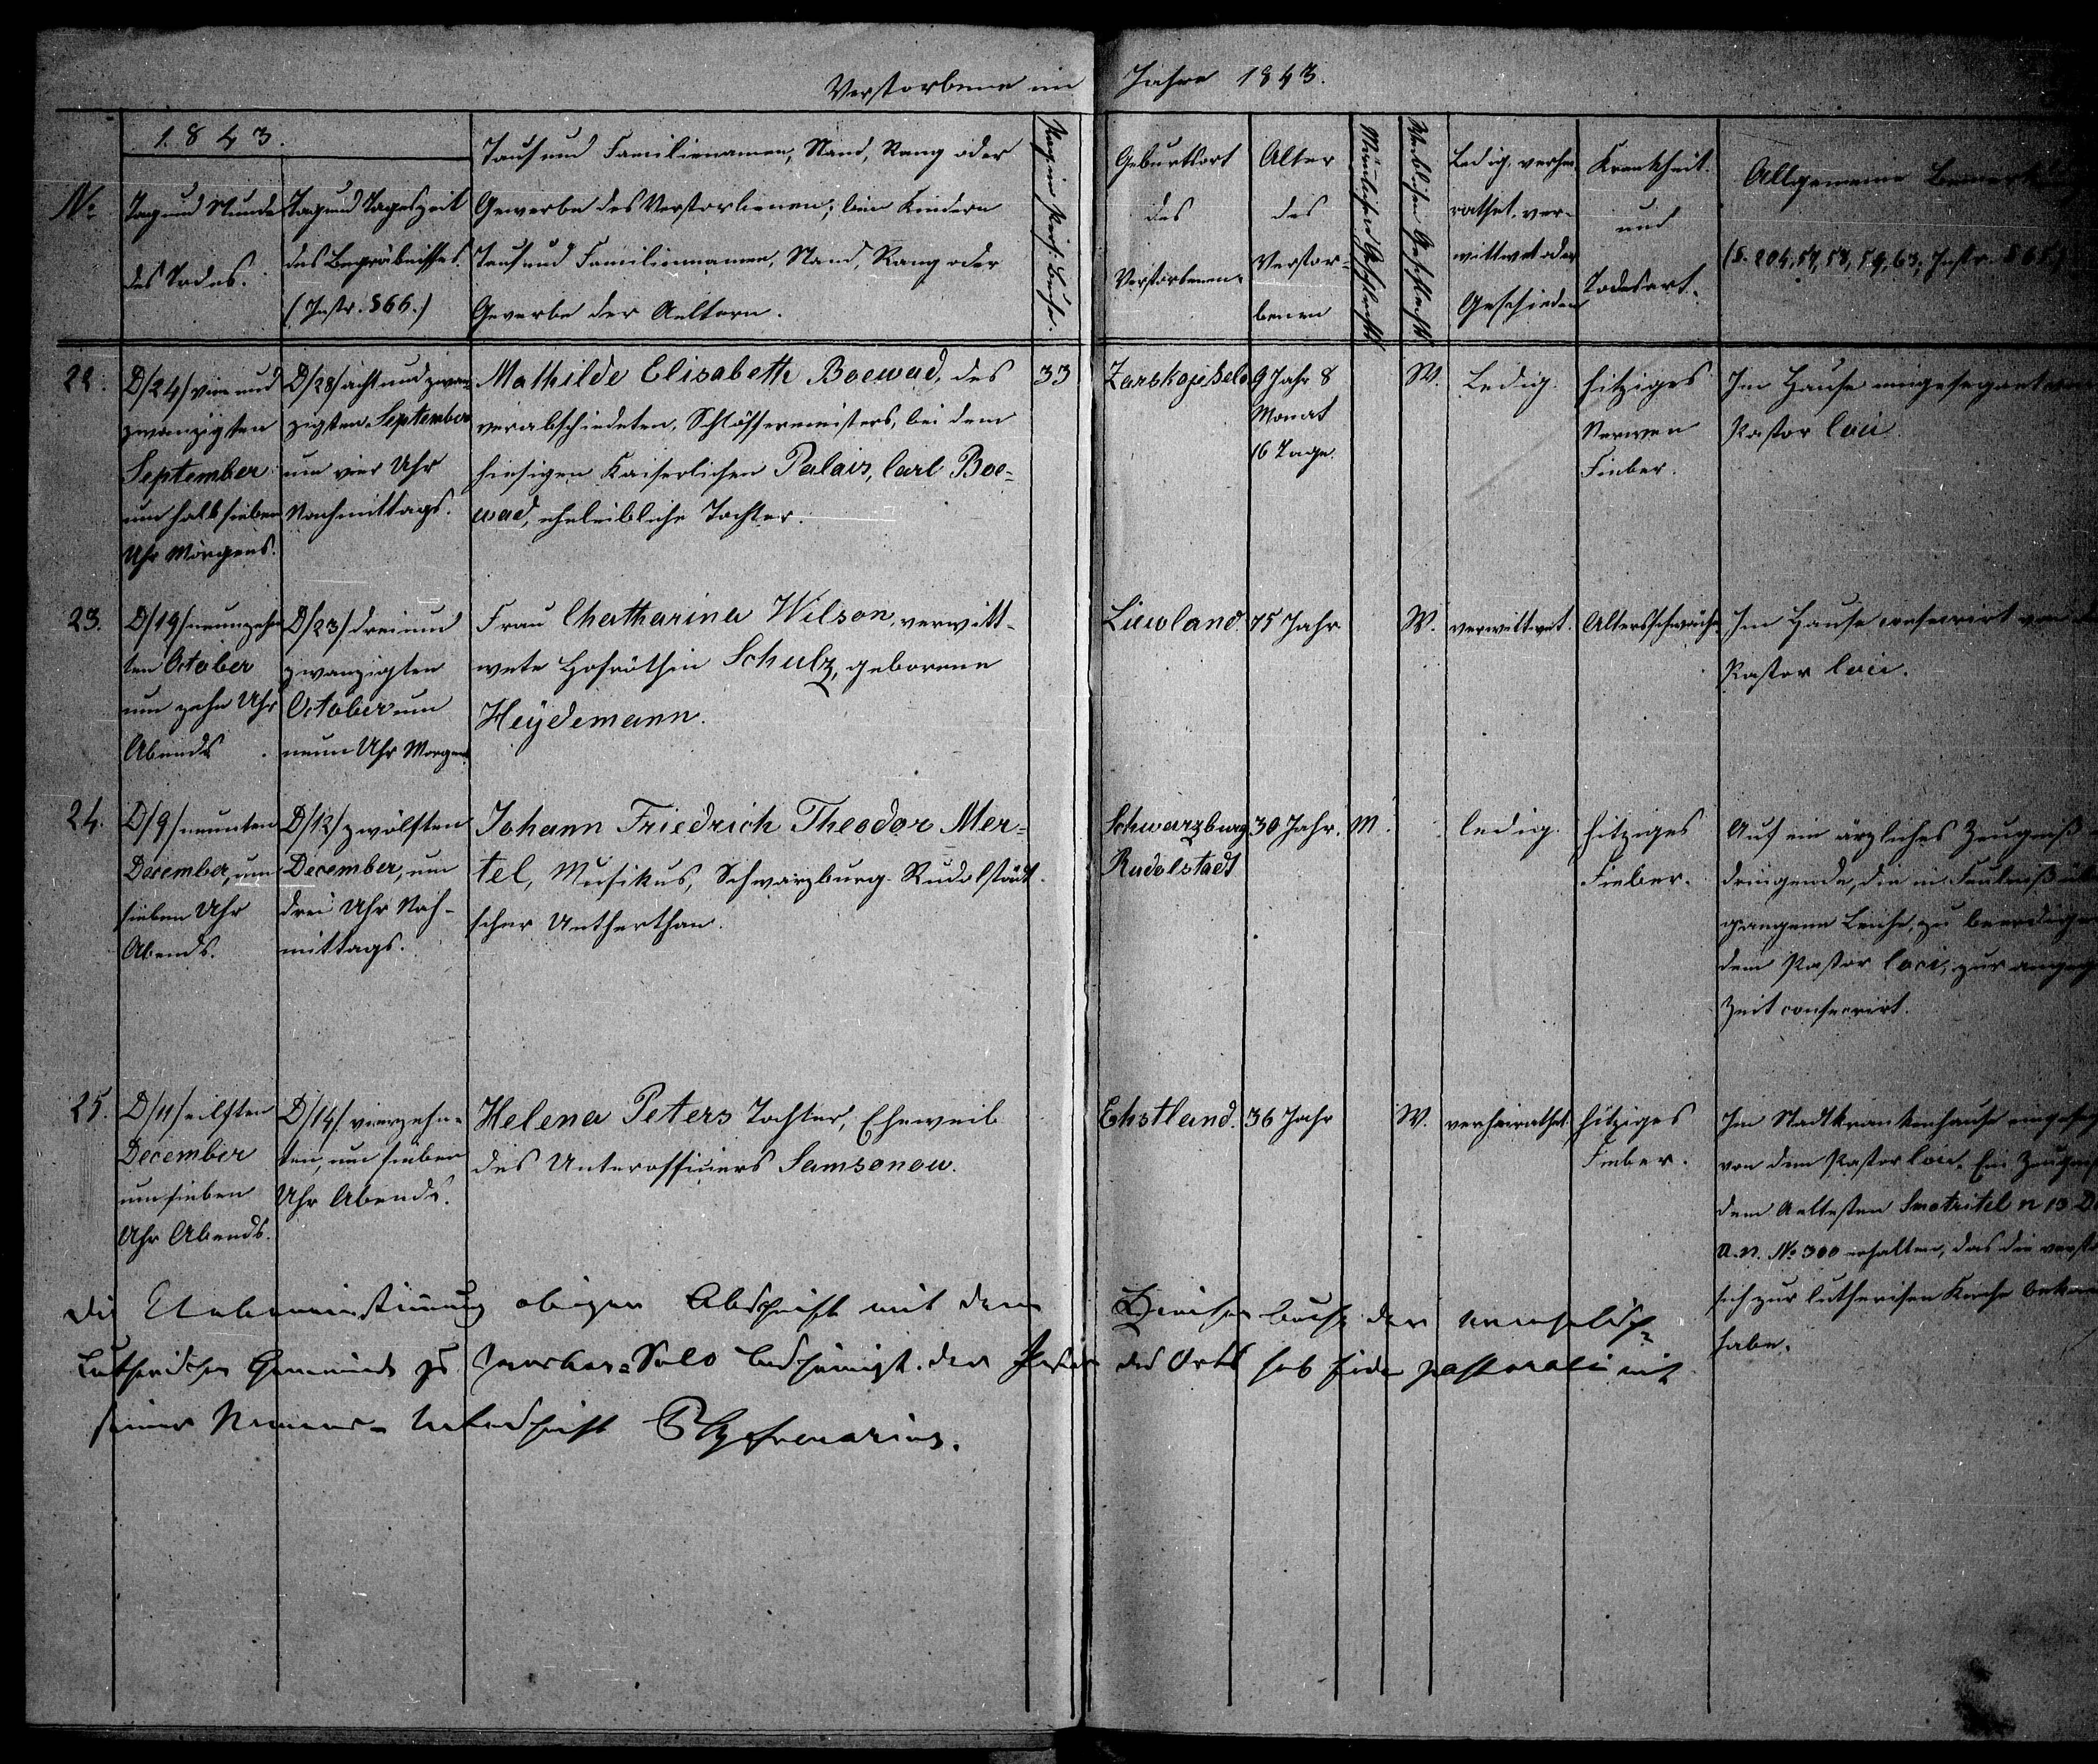 Verstorbene im Jahre 1843.
1843.
No
Tag und Stunde
des Todes.
Tag und Tageszeit
des Begräbnisses.
(Instr. § 66.)
Tauf und Familiennamen, Stand, Rang oder
Gewerbe des Verstorbenen; bei Kindern
Tauf und Familiennamen, Stand, Rang oder
Gewerbe der Aeltern.
Pag. im Pers. Buche.
Geburtsort
des
Verstorbenen.
Alter
des
Verstor-
benen
Männlichen Geschlechts
Weiblichen Geschlechts
Ledig, verhei-
rathet, ver-
wittwet oder
Geschieden
Krankheit
und
Todesart.
Allgemeine
22.
D/24/ vier und
zwanzigsten
September
um halb sieben
Uhr Morgens.
D/28/ acht und zwan-
zigsten September
um vier Uhr
Nachmittags.
Mathilde Elisabeth Boewad, des
verabschiedeten, Schlössermeisters, bei dem
hiesigen Kaiserlichen Palais, Carl Boe-
wad, eheleibliche Tochter.
33
Zarskoje Selo
9 Jahr 8
Monat
16 Tage.
W.
Ledig.
hitziges
Nerven
Fieber.
Im Hause eingesegnet
Pastor loci.
23.
D/19/ neunzehn
ten October
um zehn Uhr
Abends
D/23/ drei und
zwanzigsten
October um
neun Uhr Morgens
Frau Chatharina Wilson, verwitt-
wete Hofräthin Schulz, geborene
Heydemann.
Liewland.
75 Jahr
W.
verwittwet.
Altersschwäche
Im Hause consecrirt von
Pastor loci.
24.
D/9/ neunten
December, um
sieben Uhr
Abends.
D/12/ zwölften
December, um
drei Uhr Nach-
mittags.
Johann Friedrich Theodor Mer-
tel, Musikus, Schwarzburg-Rudolstädt-
scher Untherthan.
Schwarzburg
Rudolstadt
30 Jahr.
M.
ledig.
hitziges
Fieber.
Auf ein ärzliches Zeugniß
dringende, die in Fäulniß
gangene Leiche, zu beerdigen
dem Pastor loci, zur
Zeit consecrirt.
25.
D/11/ eilften
December
um sieben
Uhr Abends.
D/14/ vierzehn-
ten, um sieben
Uhr Abends.
Helena Peters Tochter, Eheweib
des Unterofficiers Samsonow.
Ehstland.
36 Jahr
W.
verheirathet.
hitziges
Fieber.
Im Stadtkrankenhause
von dem Pastor loci. Ein
dem Aeltesten Smotritel
No 300 erhalten, das die
sich zur lutherischen Kirche
habe.
Die Uebereinstimmung obiger Abschrift mit dem Kirchenbuche der evangelisch-
Lutherischen Gemeinde zu Zarskoe-Selo bescheinigt der Pastor des Orts sub fide pastorali mit
seiner Namens-Unterschrift